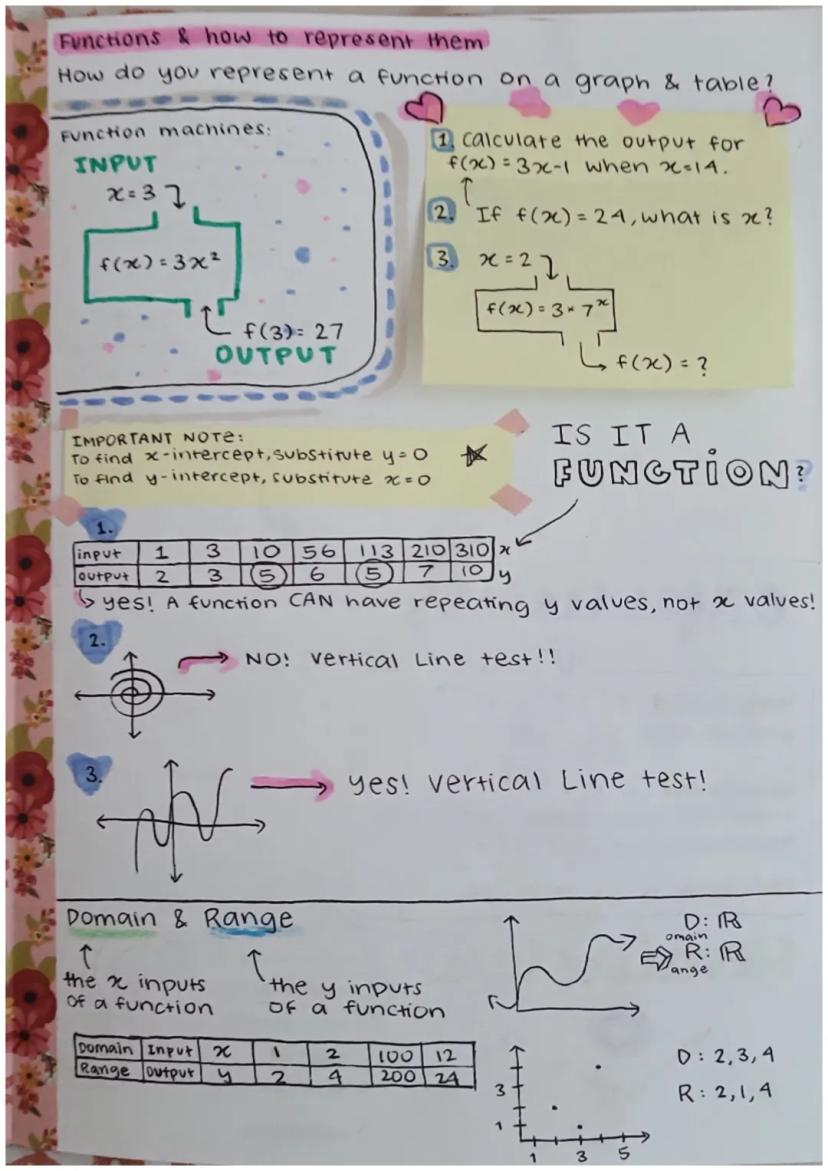 Functions & how to represent them
How do you represent a function on a graph & table?
Function machines:
INPUT
x=3
f(x)=3x²
f(3)=27
OUTPUT
1. Calculate the output for
f(x)=3x-1 when x=14.
2. If f(x)=24, what is x?
3. x=2
f(x)=3×7ˣ
f(x)=?
IMPORTANT NOTE:
To find x-intercept, substitute y=0
To find y-intercept, substitute x=0
IS IT A
FUNCTION?
1.
input 1 3 10 56 113 210 310 x
output 2 3 5 6 5 7 10 y
yes! A function CAN have repeating y values, not x values!
2.
NO! Vertical Line test!!
3.
yes! Vertical Line test!
Domain & Range
the x inputs
of a function
the y inputs
of a function
D: ℝ
omain
R: ℝ
ange
Domain Input x 1 2 100 12
Range Output y 2 4 200 24
3
1
1 3 5
D: 2,3,4
R: 2,1,4